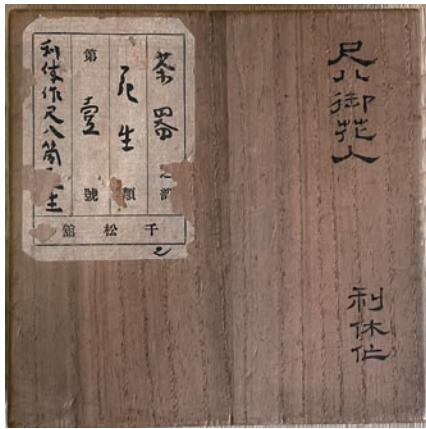 尺八御花入
利休作
茶器之部
花生類
第壹號
利休作尺八筒生
千松舘